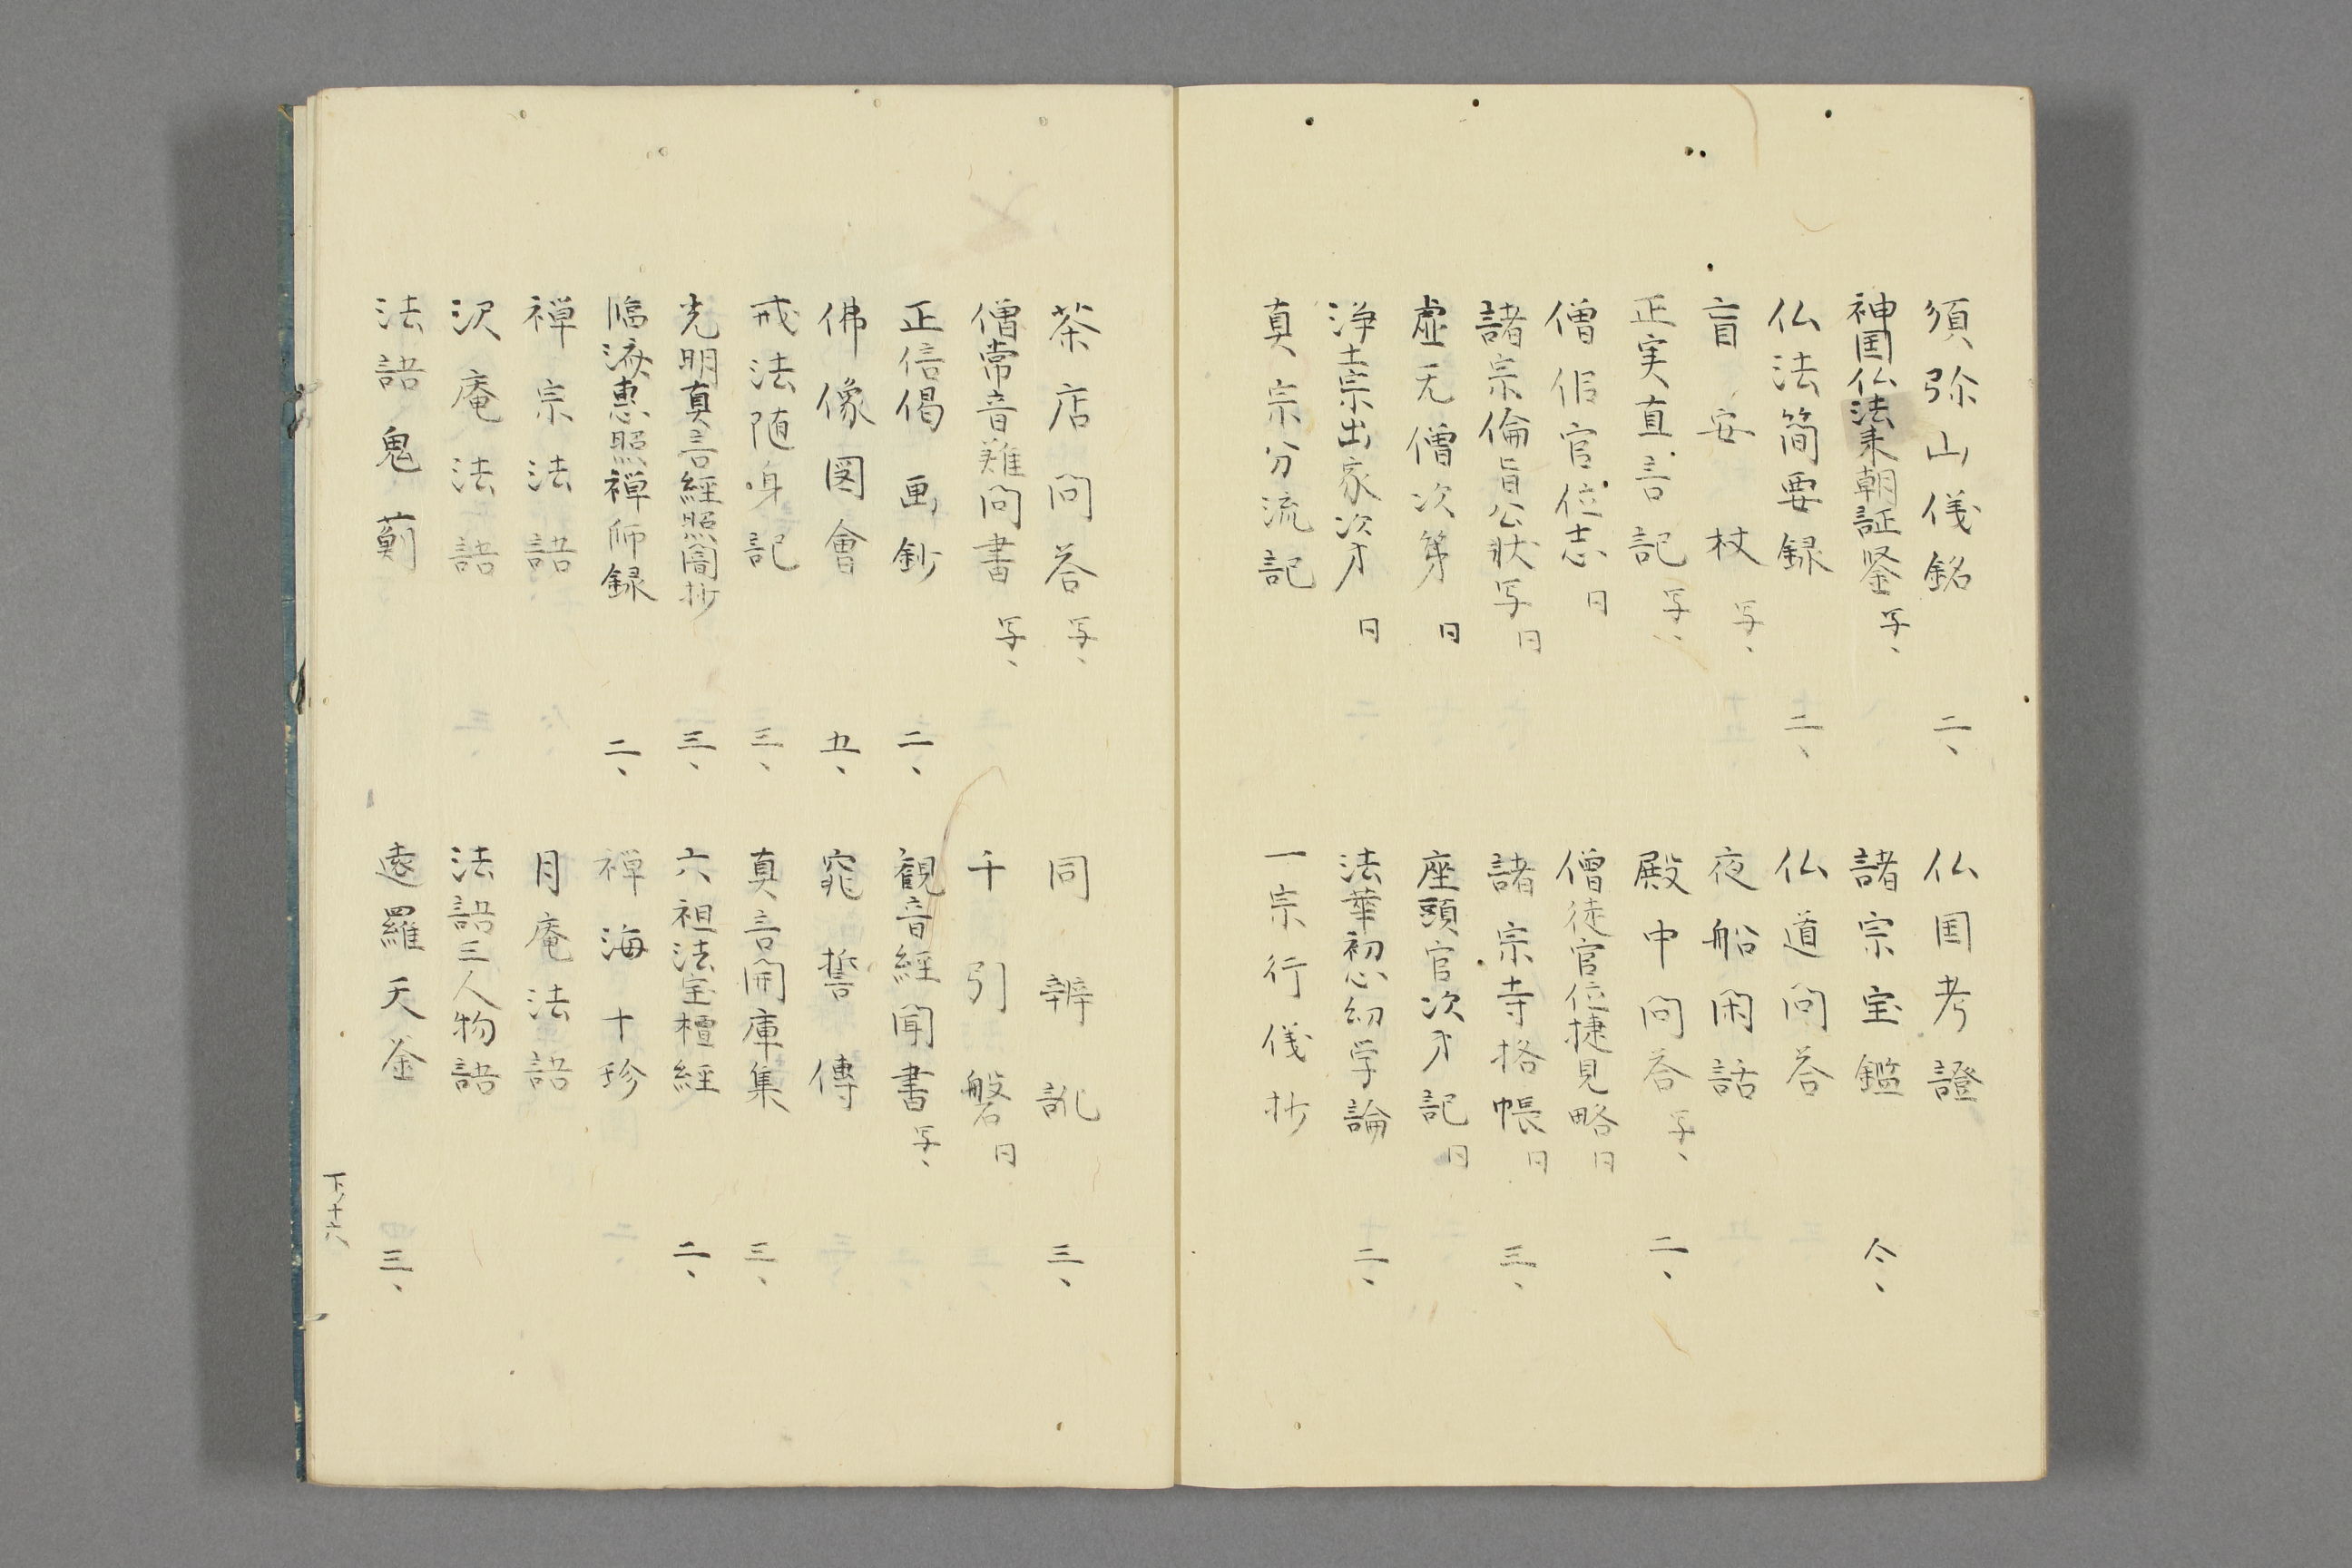 須弥山儀銘 二、
仏国考證
神国仏法来朝証鑒 写、
諸宗宝鑑 仝、
仏法簡要録 二、
仏道問答
盲安杖 写、
夜船閑話
正実直言記 写、
殿中問答 写、 二、
僧侶官位志 日
僧徒官位捷見略 日
諸宗倫旨公状 写日
諸宗寺格帳 日 三、
虚无僧次第 日
座頭官次才記 日
浄土宗出家次才 日
法華初心幼学論 二、
真宗分流記
一宗行儀抄
茶店問答 写、
同辨訛 三、
僧常音難問書 写、
千引磐 日
正信偈画鈔 二、
観音經聞書 写、
佛像図會 五、
窕誓傳
戒法随身記 三、
真言開庫集 三、
光明真言經照闇抄 三、
六祖法宝檀経 二、
臨済惠照禅師録 二、
禅海十珍
禅宗法語
月庵法語
沢庵法語
法語三人物語
法語鬼薊
遠羅天釜 三、
下ノ十六